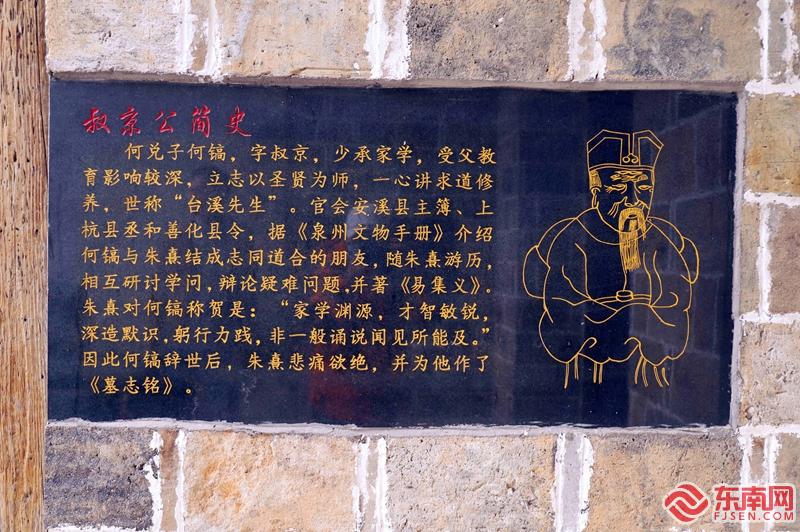 叔京公简史
何兑子何镐，字叔京，少承家学，受父教
育影响较深，立志以圣贤为师，一心讲求道修
养，世称“台溪先生”。官会安溪县主簿、上
杭县丞和善化县令，据《泉州文物手册》介绍
何镐与朱熹结成志同道合的朋友，随朱熹游历，
相互研讨学问，辩论疑难问题，并著《易集义》。
朱熹对何镐称贺是：“家学渊源，才智敏锐，
深造默识，躬行力践，非一般诵说闻见所能及。”
因此何镐辞世后，朱熹悲痛欲绝，并为他作了
《墓志铭》。
东南网
FJSEN.COM